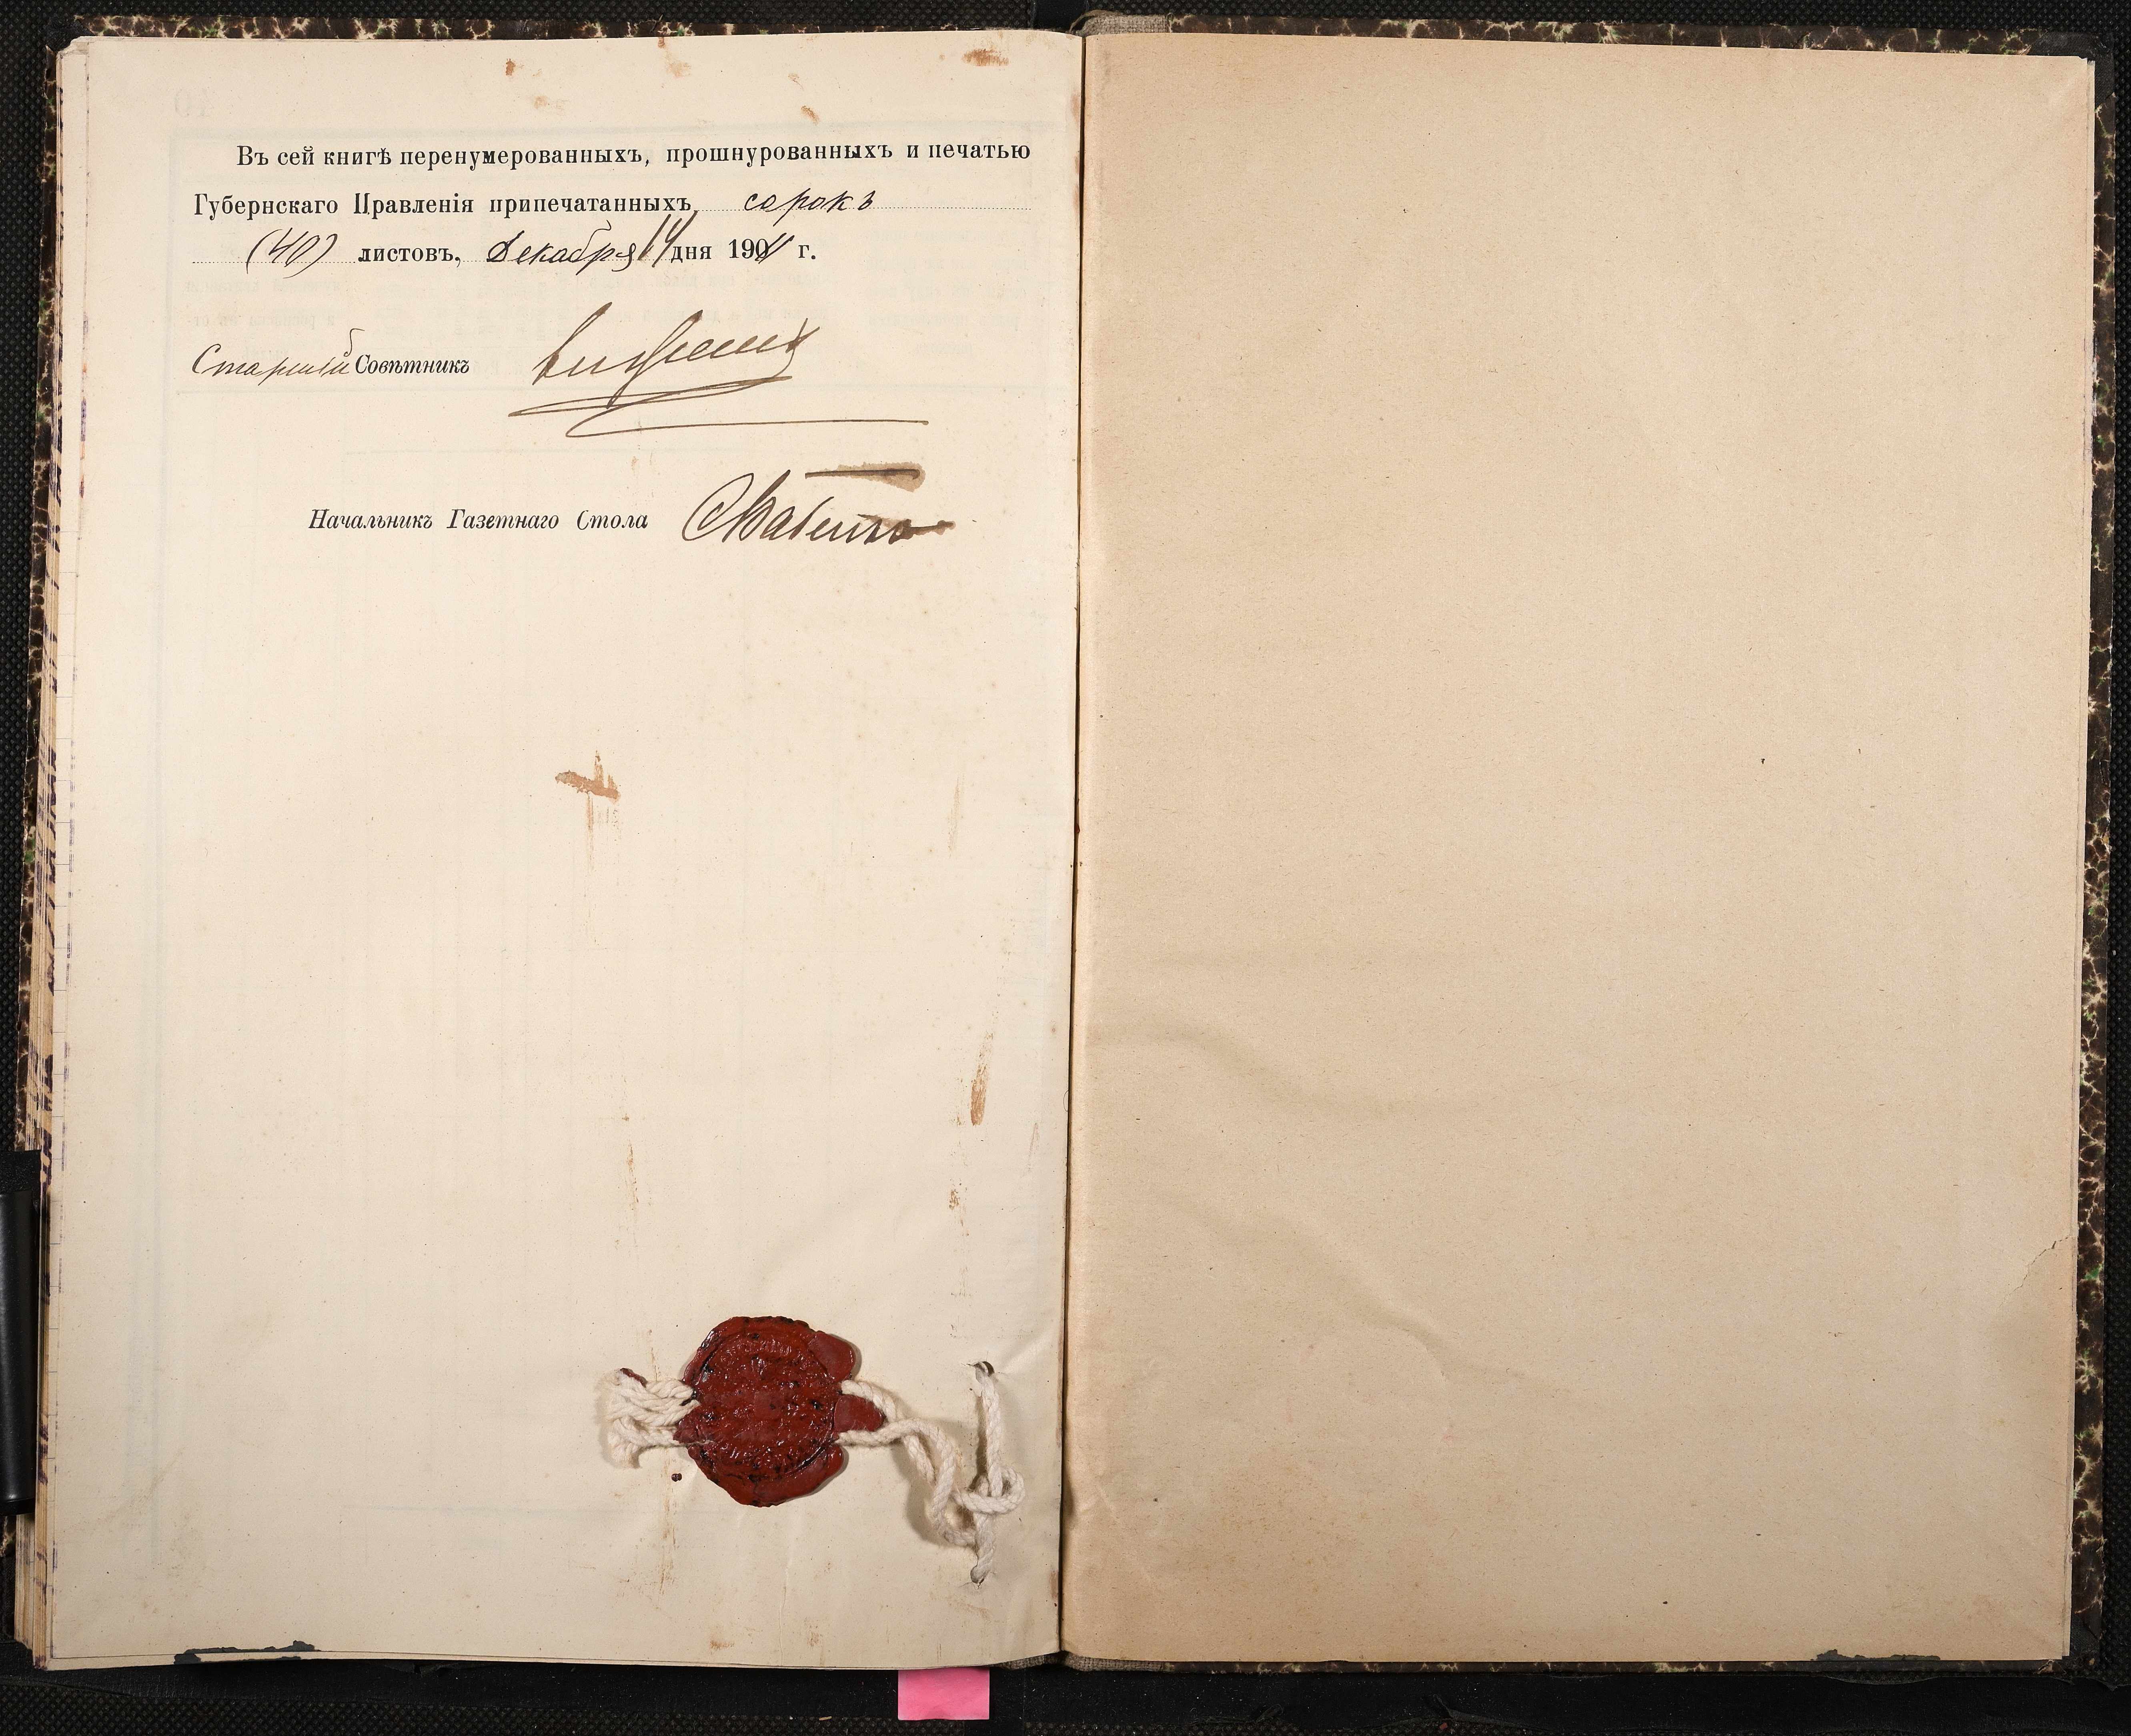 Въ сей книгѣ перенумерованныхъ, прошнурованныхъ и печатью
Губернскаго Правленія припечатанныхъ сорокъ
(40) листовъ, Декабря 14 дня 1911 г.
Старшій Совѣтникъ
Начальникъ Газетнаго Стола